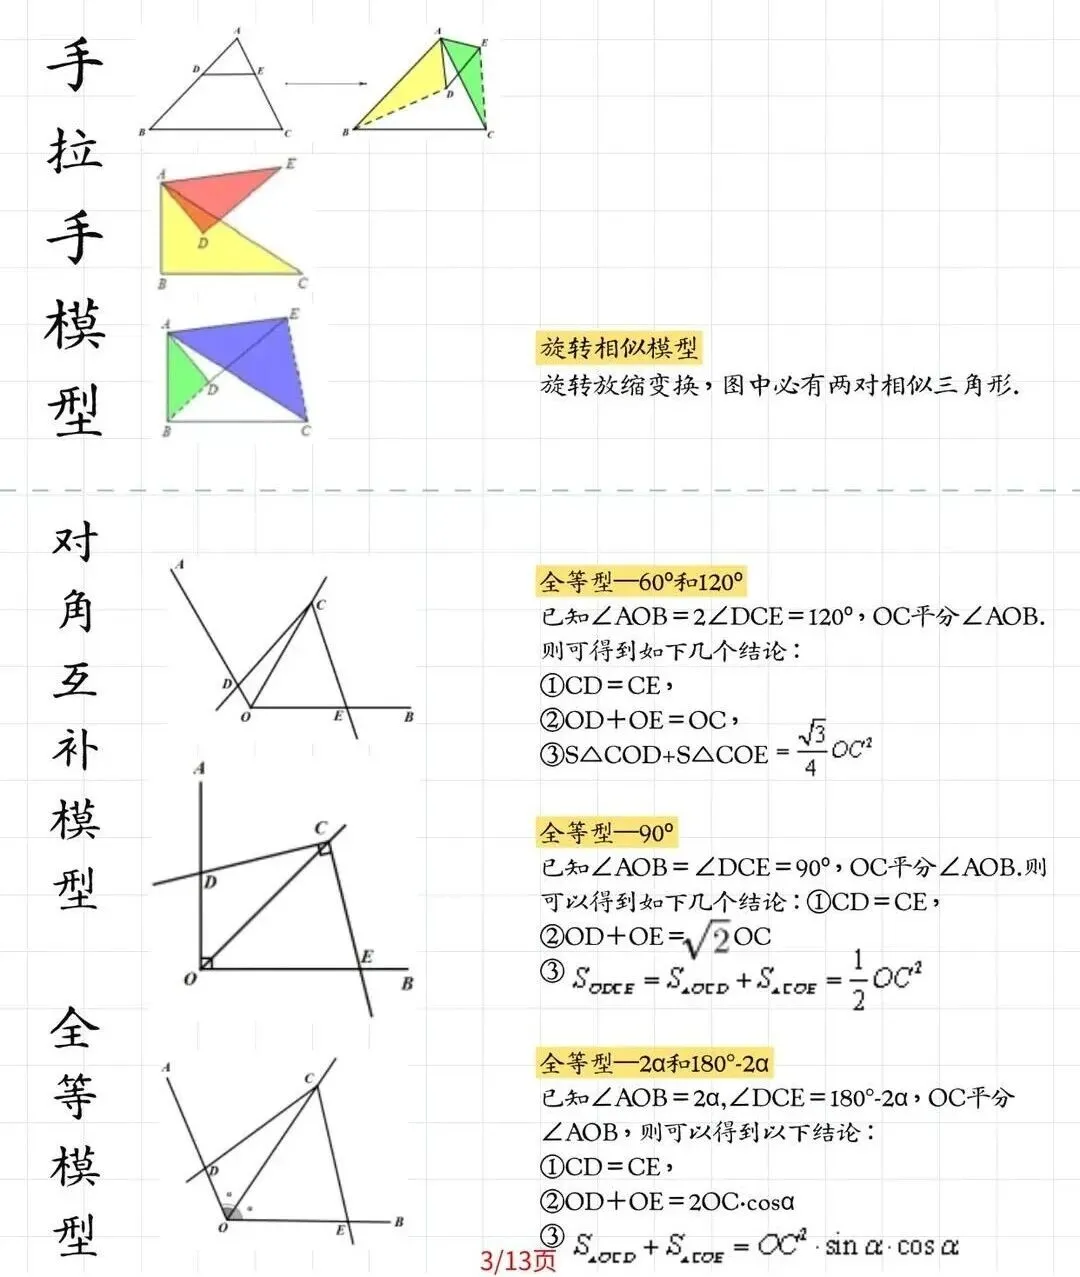 手拉手模型
A
D
E
B
C
A
E
D
B
C
A
E
D
B
C
A
E
D
B
C
旋转相似模型
旋转放缩变换，图中必有两对相似三角形.
对角互补模型 全等模型
A
C
D
O
E
B
全等型—60º和120º
已知∠AOB＝2∠DCE＝120º，OC平分∠AOB.
则可得到如下几个结论：
①CD＝CE，
②OD＋OE＝OC，
③S△COD+S△COE = √3/4 OC²
A
C
D
O
E
B
全等型—90º
已知∠AOB＝∠DCE＝90º，OC平分∠AOB.则
可以得到如下几个结论：①CD＝CE，
②OD＋OE=√2 OC
③ S_ODCE = S_△OCD + S_△COE = 1/2 OC²
A
C
D
O
E
B
全等型—2α和180°-2α
已知∠AOB＝2α,∠DCE＝180°-2α，OC平分
∠AOB，则可以得到以下结论：
①CD＝CE，
②OD＋OE＝2OC·cosα
③ S_△OCD + S_△COE = OC²·sin α·cos α
3/13页